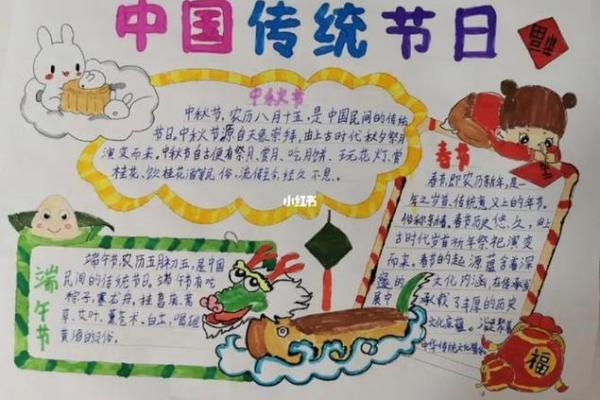 中国传统节日
福
中秋节
中秋节,农历八月十五,是中国民间的传统
节日。中秋节源自天象崇拜,由上古时代秋夕祭月
演变而来。中秋节自古便有祭月、赏月、吃月饼、玩花灯、赏
桂花、饮桂花酒等民俗,流传至今,经久不息。
小红书
春节
春节,即农历新年,是一
年之岁首、传统意义上的年节。
俗称新春。春节历史悠久,由上
古时代岁首祈年祭祀演变
而来。春节的起源蕴含着深
邃的文化内涵,在传承发
展中承载了丰厚的历史
文化底蕴。凝聚着
中华传统文化精华。
福
端午节
端午节,农历五月初五,是中国
民间的传统节日。端午节有吃
粽子,赛龙舟,挂菖蒲,蒿
草、艾叶,薰苍术、白芷,喝雄
黄酒的习俗。